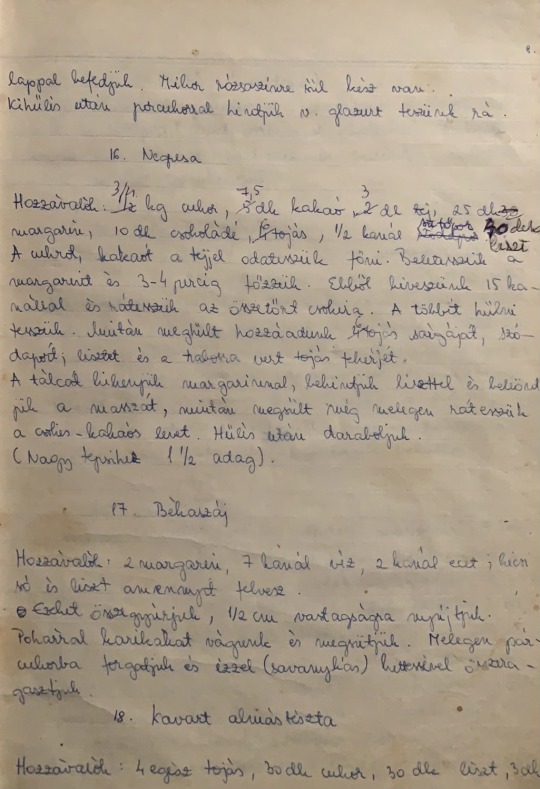 8.
lappal befedjük. Mikor rózsaszínre sül kész van.
Kihülés után porcukorral hintjük v. glazurt teszünk rá.
16. Negresa
3/4 7,5 3
Hozzávalók: 1/2 kg cukor, 5 dk kakaó, 2 dl tej, 25 dk
margarin, 10 dk csokoládé, 4 tojás, 1/2 kanál sütőpor 30 deka
liszt
A cukrot, kakaót a tejjel odatesszük főni. Beletesszük a
margarint és 3-4 percig főzzük. Ebből kiveszünk 15 ka-
nállal és rátesszük az összetört csokira. A többit hülni
tesszük. Miután meghült hozzáadunk 4 tojás sárgáját, szó-
daport, lisztet és a habosra vert tojás fehérjét.
A tálcát kikenjük margarinnal, behintjük liszttel és beleönt
jük a masszát, miután megsült még melegen rátesszük
a csokis-kakaós levet. Hülés után daraboljuk.
(Nagy tepsihez 1 1/2 adag).
17. Békaszáj
Hozzávalók: 2 margarin, 7 kanál víz, 2 kanál ecet, kicsi
só és liszt amennyit felvesz.
Ezeket összegyúrjuk, 1/2 cm vastagságra nyújtjuk.
Pohárral karikákat vágunk és megsütjük. Melegen por-
cukorba forgatjuk és ízzel (savanykás) kettesével össze ra-
gasztjuk.
18. Kavart almás tészta
Hozzávalók: 4 egész tojás, 30 dk cukor, 30 dk liszt, 3 dk